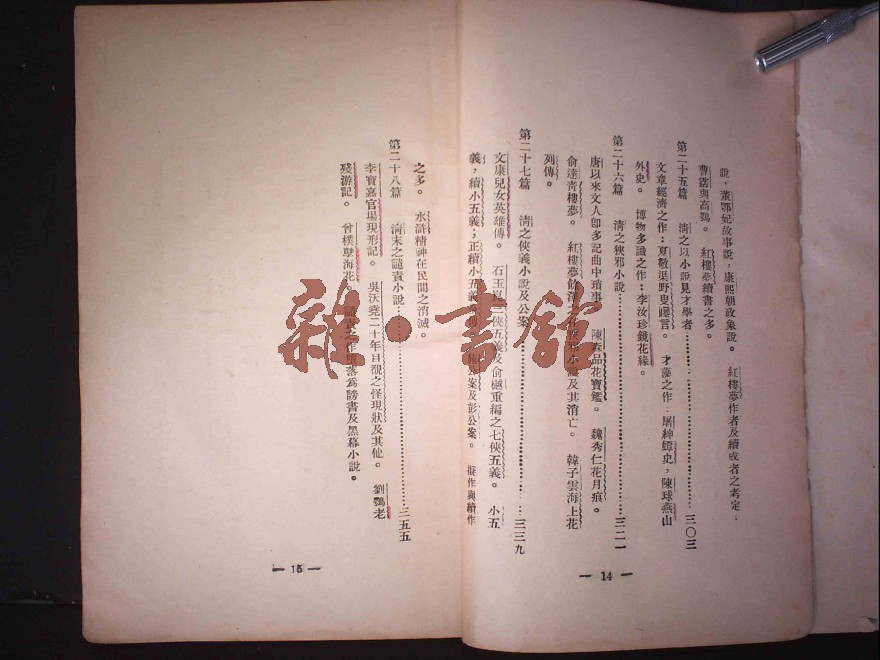 說，董鄂妃故事說，康熙朝政象說。 紅樓夢作者及續成者之考定：
曹霑與高鶚。 紅樓夢續書之多。
第二十五篇 清之以小說見才學者……三〇三
文章經濟之作：夏敬渠野叟曝言。 才藻之作：屠紳蟫史，陳球燕山
外史。 博物多識之作：李汝珍鏡花緣。
第二十六篇 清之狹邪小說……三二一
唐以來文人卽多記曲中瑣事 陳森品花寶鑑。 魏秀仁花月痕。
俞達青樓夢。 紅樓夢 及其消亡。 韓子雲海上花
列傳。
第二十七篇 清之俠義小說及公案……三三九
文康兒女英雄傳。 石玉崑三俠五義及俞樾重編之七俠五義。 小五
義，續小五義；正續小五義 公案及彭公案。 擬作與續作
— 14 —
之多。 水滸精神在民間之消滅。
第二十八篇 清末之譴責小說……三五五
李寶嘉官場現形記。 吳沃堯二十年目覩之怪現狀及其他。 劉鶚老
殘游記。 曾樸孽海花。 譴責之作墮落爲謗書及黑幕小說。
— 15 —
雜·書館